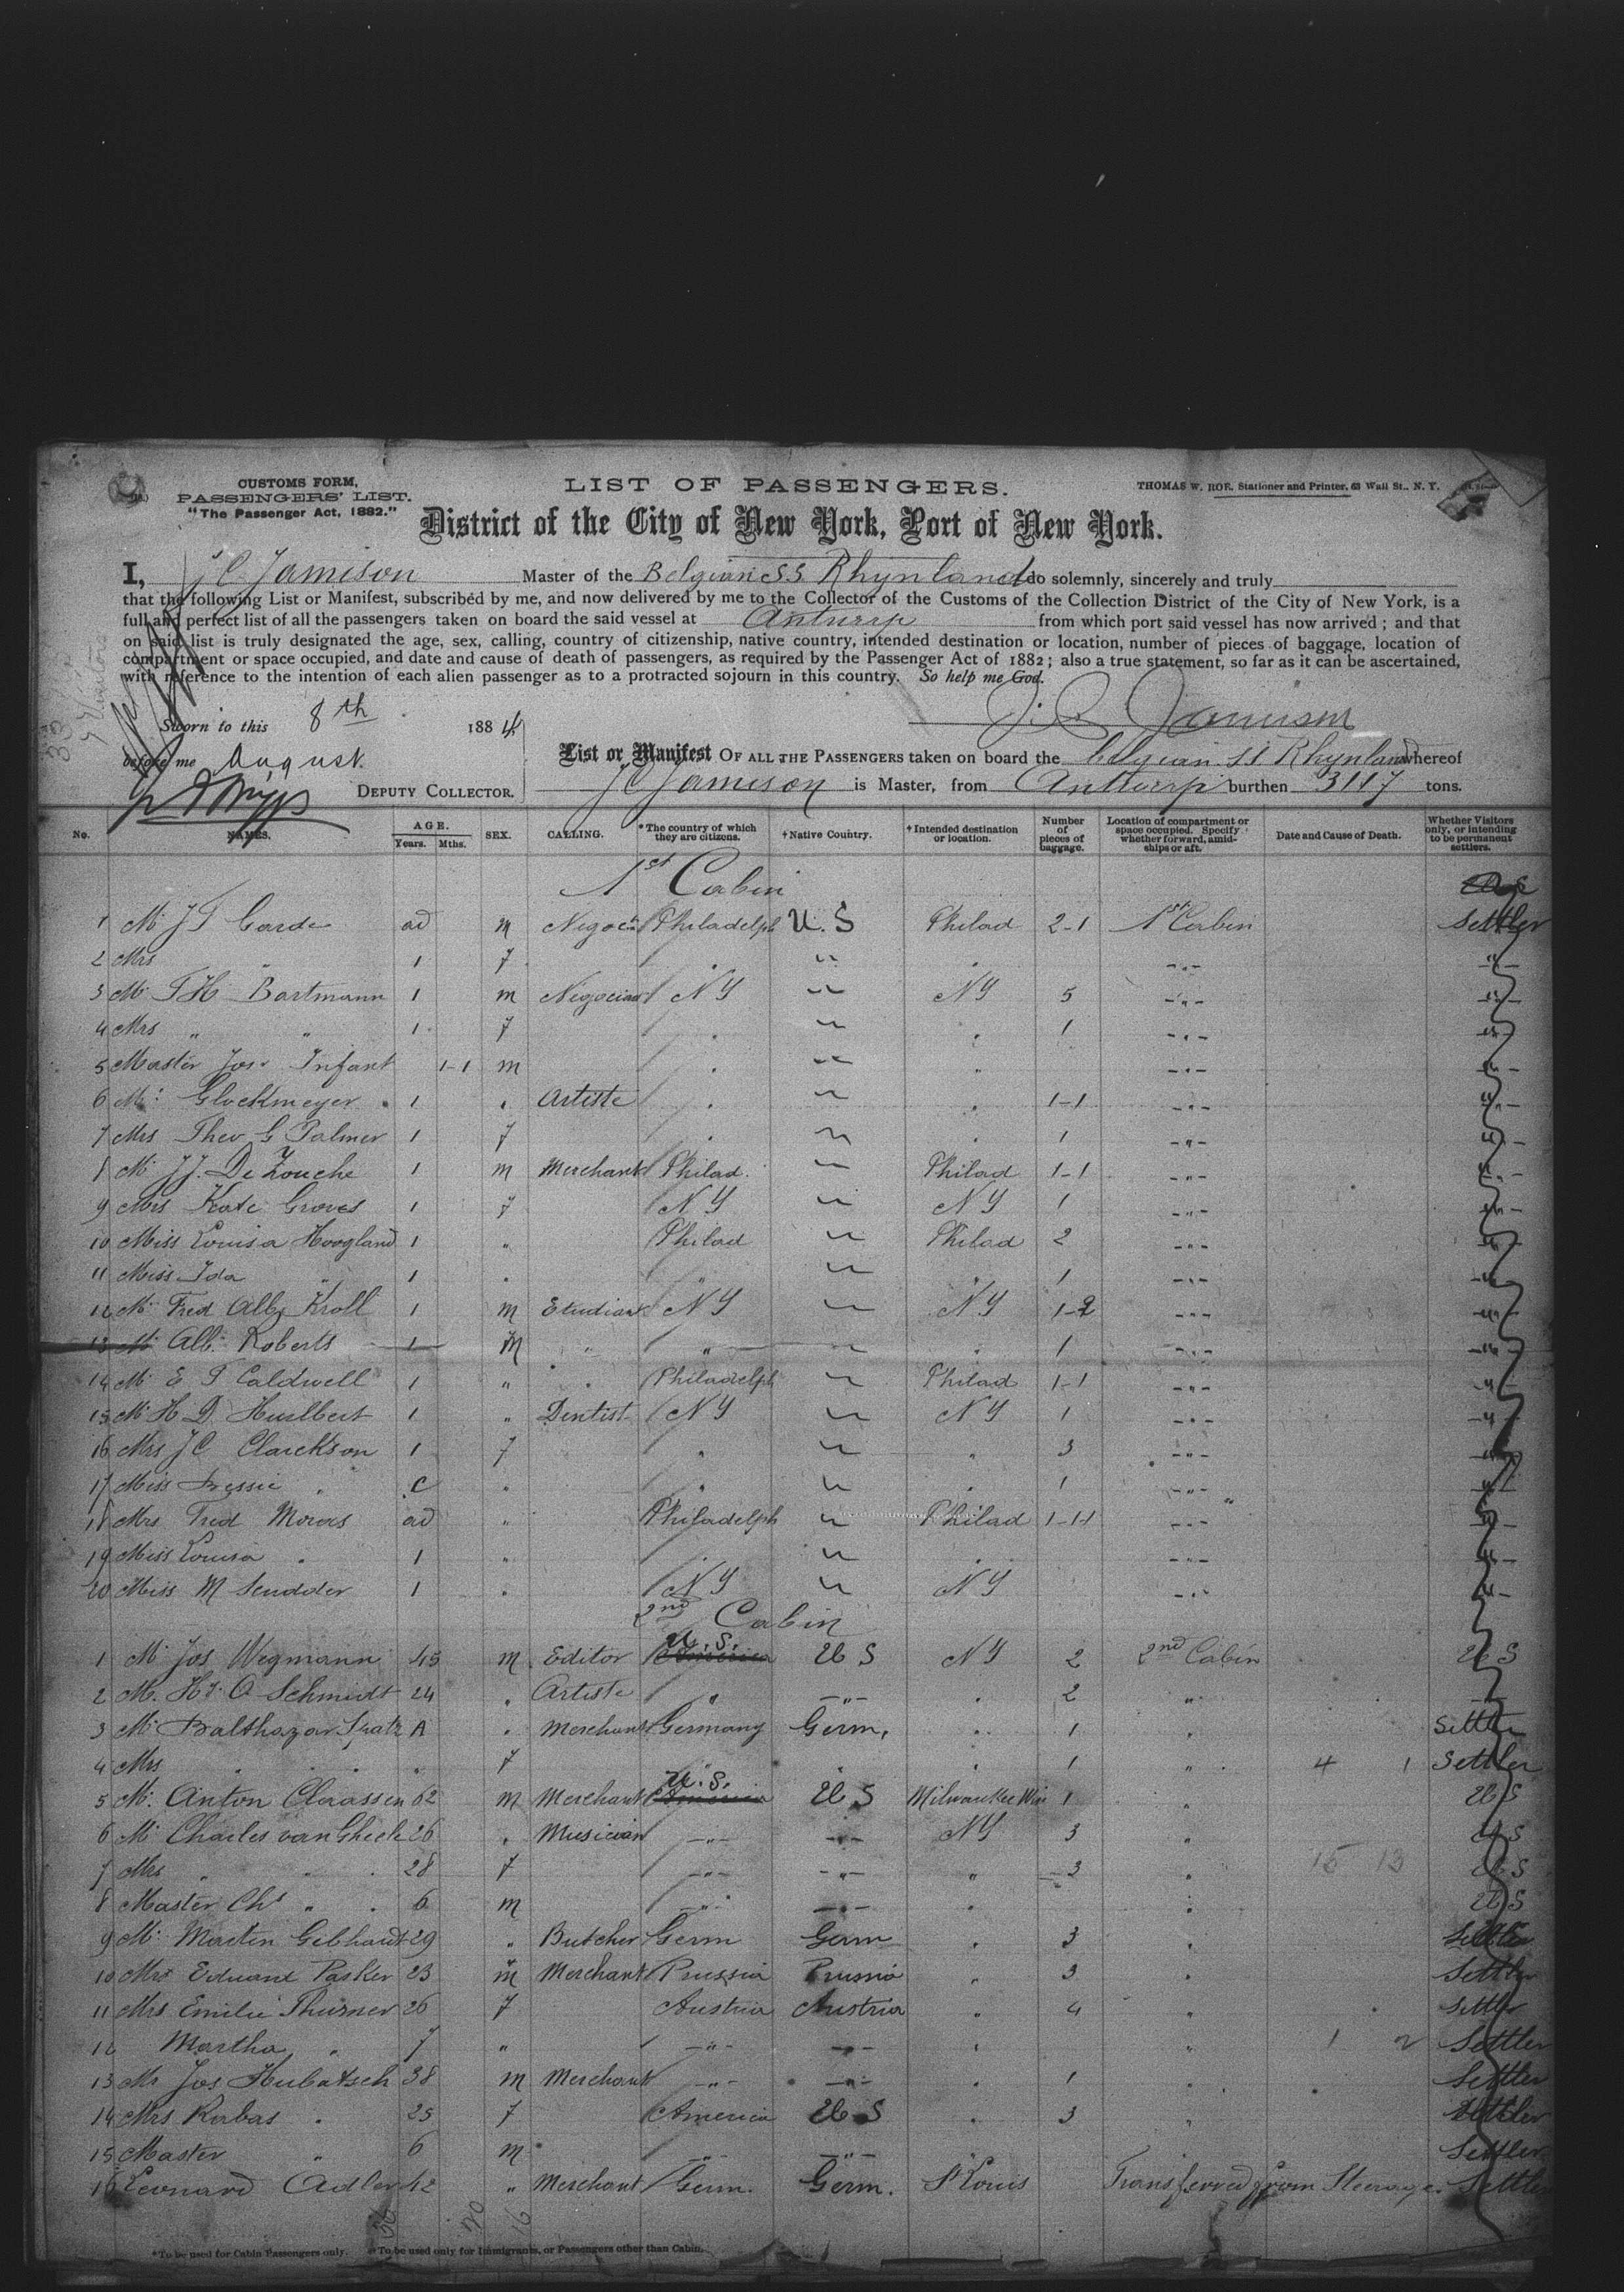 CUSTOMS FORM,
PASSENGERS' LIST.
"The Passenger Act, 1882."
LIST OF PASSENGERS.
THOMAS W. ROE, Stationer and Printer, 63 Wall St., N. Y.
District of the City of New York, Port of New York.
I, J C Jamison Master of the Belgian SS Rhynland do solemnly, sincerely and truly
that the following List or Manifest, subscribed by me, and now delivered by me to the Collector of the Customs of the Collection District of the City of New York, is a
full and perfect list of all the passengers taken on board the said vessel at Antwerp from which port said vessel has now arrived; and that
on said list is truly designated the age, sex, calling, country of citizenship, native country, intended destination or location, number of pieces of baggage, location of
compartment or space occupied, and date and cause of death of passengers, as required by the Passenger Act of 1882; also a true statement, so far as it can be ascertained,
with reference to the intention of each alien passenger as to a protracted sojourn in this country. So help me God.
Sworn to this 8th 1884
J. C. Jamison
before me August
List or Manifest OF ALL THE PASSENGERS taken on board the belgian SS Rhynland whereof
DEPUTY COLLECTOR.
J C Jamison is Master, from Antwerp burthen 3117 tons.
No. NAMES. AGE. Years. Mths. SEX. CALLING. *The country of which they are citizens. †Native Country. †Intended destination or location. Number of pieces of baggage. Location of compartment or space occupied. Specify whether forward, amidships or aft. Date and Cause of Death. Whether Visitors only, or intending to be permanent settlers.
1st Cabin
1 Mr J T Garde ad m Negoc Philadelph U.S Philad 2-1 1st Cabin Settler
2 Mrs " 1 f " " " -"- -"-
3 Mr T H Bartmann 1 m Negociant NY " NY 5 -"- -"-
4 Mrs " " 1 f " " " 1 -"- -"-
5 Master Jos Infant 1-1 m " " " -"- -"-
6 Mr Glockmeyer 1 " Artiste " " " 1-1 -"- -"-
7 Mrs Theo G Palmer 1 f " " " 1 -"- -"-
8 Mr J J. De Zouche 1 m Merchant Philad. " Philad 1-1 -"- -"-
9 Mrs Kate Groves 1 f NY " NY 1 -"- -"-
10 Miss Louisa Hoogland 1 " Philad " Philad 2 -"- -"-
11 Miss Ida " 1 " " " " 1 -"- -"-
12 Mr Fred Kroll 1 m Etudiant NY " NY 1-2 -"- -"-
13 Mr Alb. Roberts 1 m " " " " 1 -"- -"-
14 Mr E T Caldwell 1 " " Philadelph " Philad 1-1 -"- -"-
15 Mr H D Hurlbert 1 " Dentist NY " NY 1 -"- -"-
16 Mrs J C Clarckson 1 f " " " 3 -"- -"-
17 Miss Bessie " c " " " " 1 -"- -"-
18 Mrs Fred ad " Philadelph " Philad 1-1-1 -"- -"-
19 Miss Louisa " 1 " " " " -"- -"-
20 Miss M Scudder 1 " NY " NY -"- -"-
2nd Cabin
1 Mr Jos Wegmann 45 m Editor U.S. US NY 2 2nd Cabin US
2 Mr. O Schmidt 24 " Artiste " -"- " 2 " -"-
3 Mr Balthazar Spatz A " Merchant Germany Germ. " 1 " Settler
4 Mrs " " " f " " " 1 " 4 1 Settler
5 Mr. Anton Claassen 62 m Merchant U.S. US Milwaukee Wis 1 " US
6 Mr Charles van Gheele 26 " Musician -"- -"- NY 3 " US
7 Mrs " " 28 f -"- -"- " 3 " 15 13 US
8 Master Chs " " 6 m -"- -"- " " US
9 Mr Martin Gebhardt 29 " Butcher Germ Germ " 3 " Settler
10 Mr Eduard Pasker 23 m Merchant Prussia Prussia " 3 " Settler
11 Mrs Emilie Thurner 26 f Austria Austria " 4 " Settler
12 Martha " 7 " -"- -"- " " 1 2 Settler
13 Mr Jos Hubatsch 38 m Merchant -"- -"- " 1 " Settler
14 Mrs Rabas " 25 f America US " 3 " Settler
15 Master " 6 m " -"- " " Settler
16 Leonard Adler 42 " Merchant Germ. Germ. St Louis Transferred from Steerage Settler
20 16
*To be used for Cabin Passengers only. †To be used only for Immigrants, or Passengers other than Cabin.